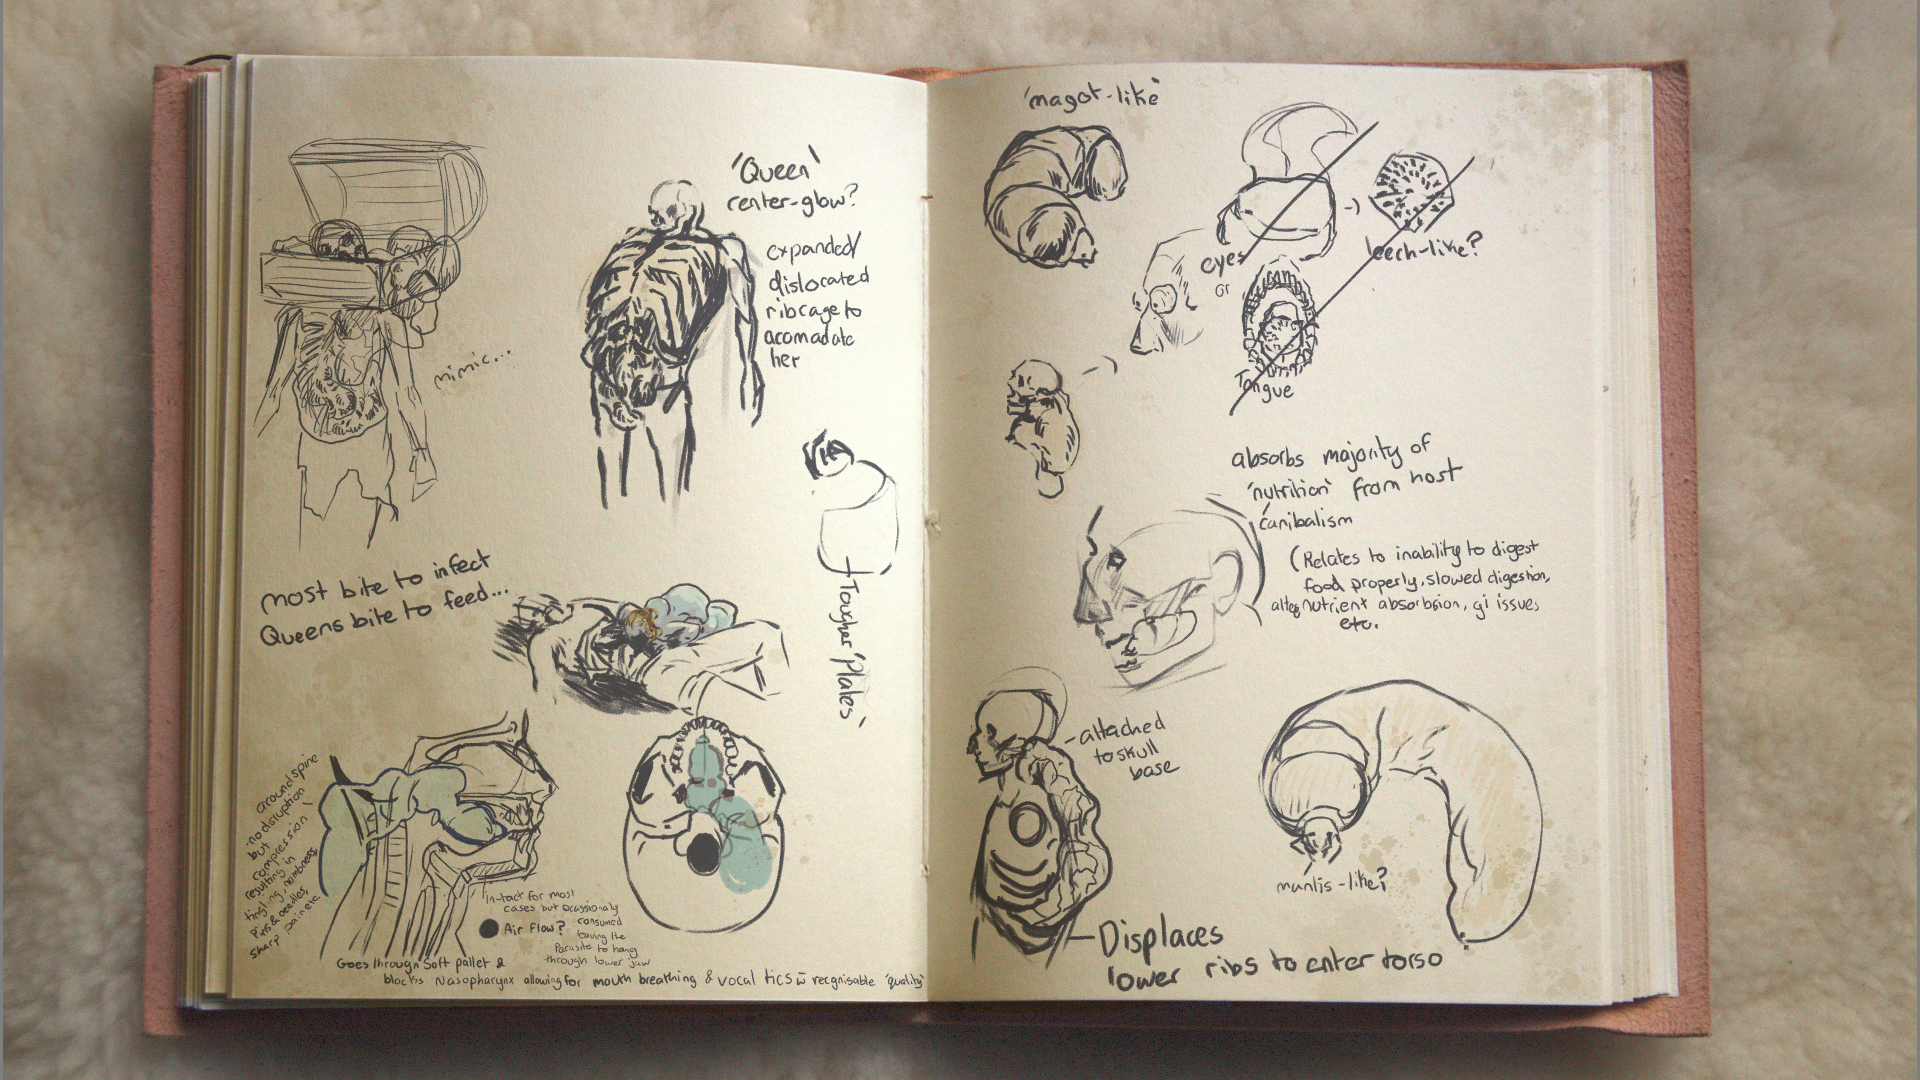 'Queen'
center-glow?
expanded/
dislocated
ribcage to
acomadate
her
mimic...
most bite to infect
Queens bite to feed...
Tougher 'Plates'
around spine
no disruption
but
compression
resulting in
tingling, numbness,
pins & needles,
sharp pain etc.
in-tact for most
cases but ocassionaly
consumed
leaving the
Parasite to hang
through lower jaw
Air Flow?
Goes through soft pallet &
blocks Nasopharynx allowing for mouth breathing & vocal tics w recgnisable 'quality'
'magot-like'
eyes
or
leech-like?
Tongue
absorbs majority of
'nutrition' from host
canibalism
(Relates to inability to digest
food properly, slowed digestion,
nutrient absorbsion, gi issues
etc.
-attached
to skull
base
mantis-like?
Displaces
lower ribs to enter torso